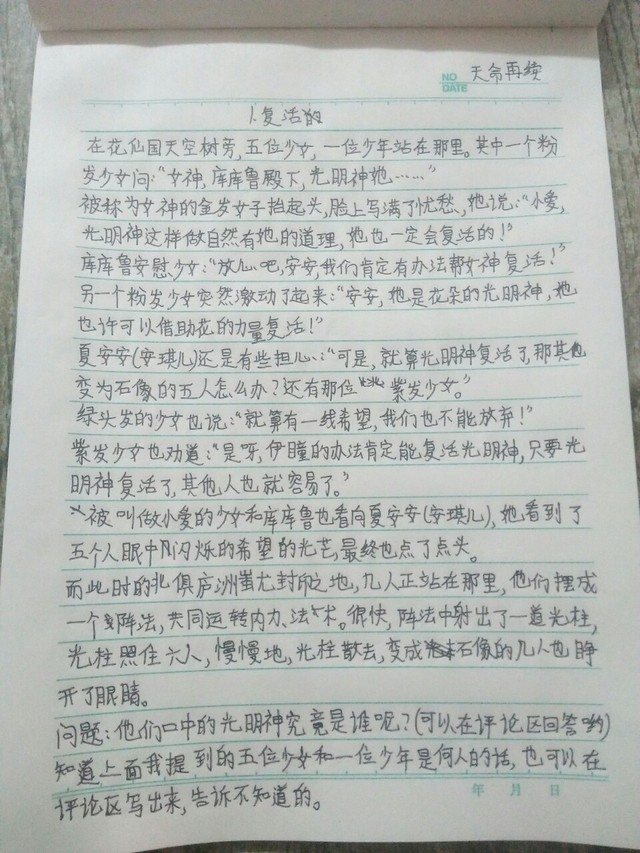 NO 天命再续
DATE
1.复活的
在花仙国天空树旁,五位少女,一位少年站在那里。其中一个粉
发少女问:“女神,库库鲁殿下,光明神她……”
被称为女神的金发女子抬起头,脸上写满了忧愁,她说:“小爱,
光明神这样做自然有她的道理,她也一定会复活的!”
库库鲁安慰少女:“放心吧,安安,我们肯定有办法帮女神复活!”
另一个粉发少女突然激动了起来:“安安,她是花朵的光明神,她
也许可以借助花的力量复活!”
夏安安(安琪儿)还是有些担心:“可是,就算光明神复活了,那其他
变为石像的五人怎么办?还有那位紫发少女。”
绿头发的少女也说:“就算有一线希望,我们也不能放弃!”
紫发少女也劝道:“是呀,伊瞳的办法肯定能复活光明神,只要光
明神复活了,其他人也就容易了。”
被叫做小爱的少女和库库鲁也看向夏安安(安琪儿),她看到了
五个人眼中闪烁的希望的光芒,最终也点了点头。
而此时的北俱庐洲蚩尤封印之地,几人正站在那里,他们摆成
一个阵法,共同运转内力、法术。很快,阵法中射出了一道光柱,
光柱照住六人,慢慢地,光柱散去,变成石像的几人也睁
开了眼睛。
问题:他们口中的光明神究竟是谁呢?(可以在评论区回答哟)
知道上面我提到的五位少女和一位少年是何人的话,也可以在
评论区写出来,告诉不知道的。
年 月 日